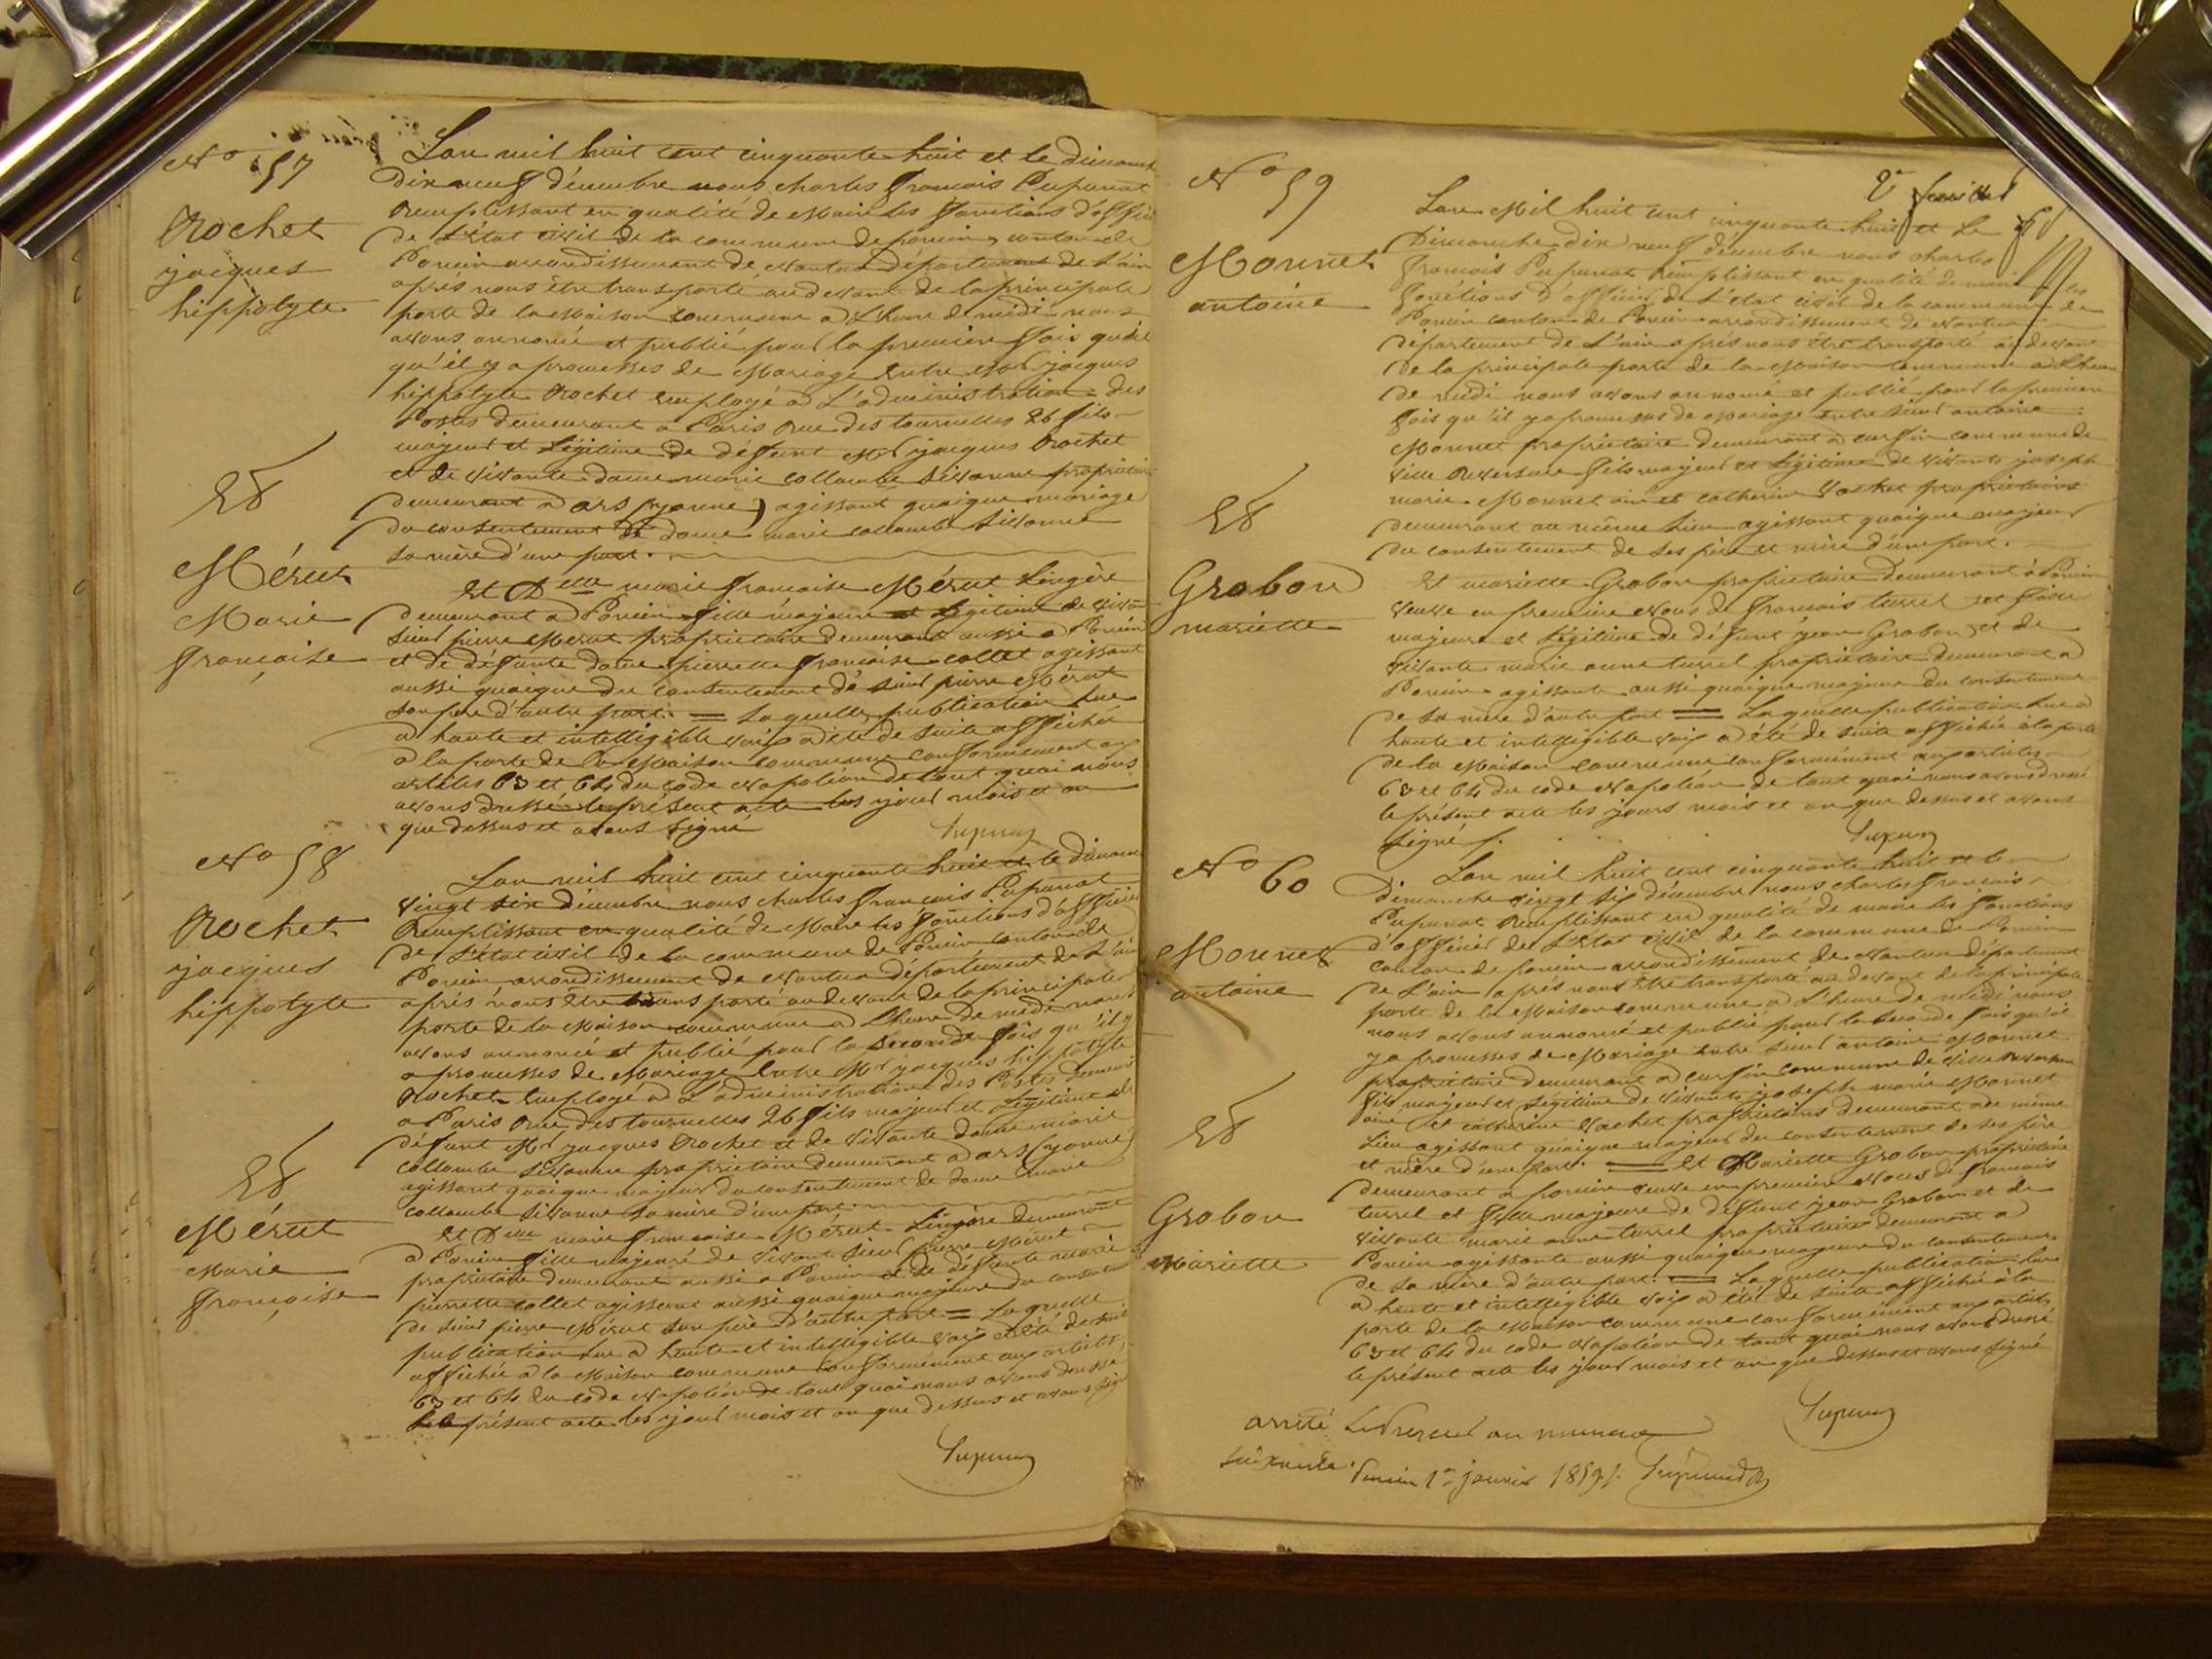 N° 57
Rochet
jacques
hippolyte
Et
Mérut
Marie
françoise
L'an mil huit cent cinquante huit et le dimanche
Dix neuf décembre nous charles françois Pupunat
Remplissant en qualité de Maire les fonctions d'officier
de L'état civil de la commune de poncin, canton de
Poncin arrondissement de Nantua département de L'ain
après nous être transporté au devant de la principale
porte de la Maison commune a L'heure de midi nous
avons annoncé et publié pour la première fois qu'il
qu'il y a promesses de Mariage Entre Mr jacques
hippolyte Rochet employé a L'administration des
Postes demeurant a Paris Rue des tournelles 26 fils
majeur et Légitime de défunt Mr jacques Rochet
et de vivante dame marie collombe Sivonne propriétaire
demeurant a ars (yonne) agissant quoique mariage
du consentement de dame marie collombe Sivonne
sa mère d'une part.
Et Dlle marie françoise Mérut Lingère
demeurant a Poncin fille majeure et Légitime de vivant
Sieur pierre Mérut propriétaire demeurant aussi a Poncin
et de défunte dame pierrette françoise collet agissant
aussi quoique du consentement de Sieur pierre Mérut
son père d'autre part. = Laquelle publication Lue
a haute et intelligible voix a été de suite affichée
a la porte de la Maison commune conformément aux
articles 63 et 64 du code Napoléon de tout quoi nous
avons dressé le présent acte les jour mois et an
que dessus et avons signé
N° 58
Rochet
jacques
hippolyte
Et
Mérut
Marie
françoise
L'an mil huit cent cinquante huit et le dimanche
vingt six décembre nous charles françois Pupunat
Remplissant en qualité de Maire les fonctions d'officier
de L'état civil de la commune de Poncin canton de
Poncin arrondissement de Nantua département de L'ain
après nous être transporté au devant de la principale
porte de la Maison commune a L'heure de midi nous
avons annoncé et publié pour la seconde fois qu'il y
a promesses de Mariage Entre Mr jacques hippolyte
Rochet Employé a L'administration des Postes demeurant
a Paris Rue des tournelles 26 fils majeur et Légitime de
défunt Mr jacques Rochet et de vivante dame marie
collombe Sivonne propriétaire demeurant a ars (yonne)
agissant quoique majeur du consentement de dame marie
collombe Sivonne sa mère d'une part.
Et Dlle marie françoise Mérut Lingère demeurant
a Poncin fille majeure de vivant Sieur pierre Mérut
propriétaire demeurant aussi a Poncin et de défunte marie
pierrette collet agissant aussi quoique majeure du consentement
de Sieur pierre Mérut son père d'autre part = Laquelle
publication Lue a haute et intelligible voix a été de suite
affichée a la Maison commune conformément aux articles
63 et 64 du code Napoléon de tout quoi nous avons dressé
le présent acte les jour mois et an que dessus et avons signé
N° 59
Monnet
antoine
Et
Grobon
mariette
2e feuillet
L'an Mil huit cent cinquante huit et Le
Dimanche dix neuf décembre nous charles
françois Pupunat Remplissant en qualité de maire les
fonctions d'officier de L'état civil de la commune de
Poncin canton de Poncin arrondissement de Nantua
département de L'ain après nous être transporté au devant
de la principale porte de la Maison commune a L'heure
de midi nous avons annoncé et publié pour la première
fois qu'il y a promesses de Mariage entre Sieur antoine
Monnet propriétaire demeurant a commune de
ville Reversure fils majeur et Légitime de vivants joseph
marie Monnet ainé et catherine Vachet propriétaires
demeurant au même Lieu agissant quoique majeur
du consentement de ses père et mère d'une part.
Et mariette Grobon propriétaire demeurant à Poncin
veuve en première Noces de françois turrel et fille
majeure et Légitime de défunt jean Grobon et de
vivante marie anne turrel propriétaire demeurant a
Poncin agissante aussi quoique majeure du consentement
de sa mère d'autre part = Laquelle publication Lue a
haute et intelligible voix a été de suite affichée à la porte
de la Maison commune conformément aux articles
63 et 64 du code Napoléon de tout quoi nous avons dressé
le présent acte les jours mois et an que dessus et avons
signé
N° 60
Monnet
antoine
Et
Grobon
Mariette
L'an mil huit cent cinquante huit et le
Dimanche vingt six décembre nous charles françois
Pupunat Remplissant en qualité de maire les fonctions
d'officier de L'état civil de la commune de Poncin
canton de poncin arrondissement de Nantua département
de L'ain après nous être transporté au devant de la principale
porte de la Maison commune a L'heure de midi nous
nous avons annoncé et publié pour la seconde fois qu'il
y a promesses de Mariage entre Sieur antoine Monnet
propriétaire demeurant a commune de ville Reversure
fils majeur et Légitime de vivants joseph marie Monnet
ainé et catherine Vachet propriétaires demeurant au même
Lieu agissant quoique majeur du consentement de ses père
et mère d'une part. = Et Mariette Grobon propriétaire
demeurant a poncin veuve en première Noces de françois
turrel et fille majeure de défunt jean Grobon et de
vivante marie anne turrel propriétaire demeurant a
Poncin agissante aussi quoique majeure du consentement
de sa mère d'autre part. = Laquelle publication Lue
a haute et intelligible voix a été de suite affichée à la
porte de la Maison commune conformément aux articles
63 et 64 du code Napoléon de tout quoi nous avons dressé
le présent acte les jour mois et an que dessus et avons signé
arrêté Le Présent au numero
Soixante. Poncin 1er janvier 1859.